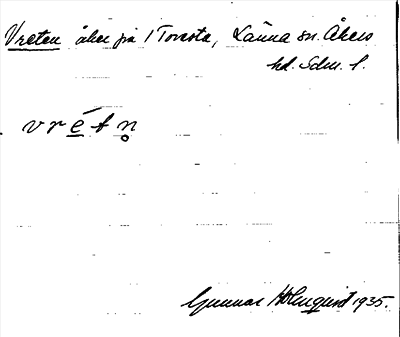 Vreten åker på 1 Tovesta, Länna sn. Åkers
hd. Sdm. l.
vrétn̥
Gunnar Holmquist 1935.